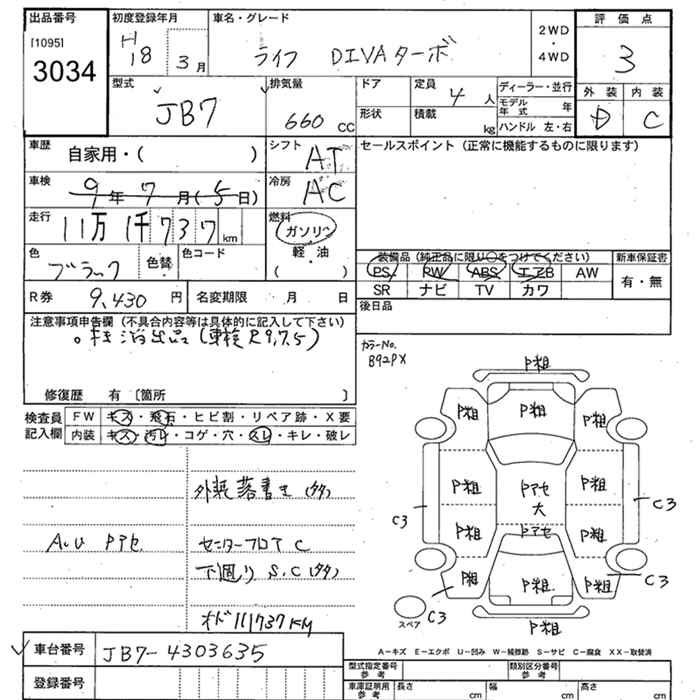 出品番号
[1095]
3034
初度登録年月
H18 3月
車名・グレード
ライフ DIVAターボ
2WD・4WD
評価点
3
外装 内装
D C
型式
JB7
排気量
660 CC
ドア
定員 4 人
形状
積載 kg
ディーラー・並行
モデル年式 年
ハンドル 左・右
車歴
自家用・( )
シフト
AT
車検
9年7月(5日)
冷房
AC
走行
11万1千737km
燃料
ガソリン
軽・油
( )
色
ブラック
色替
色コード
R券 9,430円
名変期限 月 日
セールスポイント (正常に機能するものに限ります)
装備品 (純正品に限り○をつけてください)
PS RW ABS エアB AW
SR ナビ TV カワ
新車保証書
有・無
後日品
注意事項申告欄 (不具合内容等は具体的に記入して下さい)
。抹消出品(車検R9,7.5)
修復歴 有〔箇所 〕
検査員記入欄
FW キズ・飛石・ヒビ割・リペア跡・X要
内装 キズ・汚レ・コゲ・穴・スレ・キレ・破レ
外装落書き(タタ)
A.U Pアセ
センターフロア C
下廻り S.C(タタ)
オド111737KM
カラーNo.
B92PX
P粗
P粗 P粗 P粗
P粗 Pアセ大 P粗
C3 C3
P粗 Pアセ P粗
P粗 P粗 P粗 C3
スペア C3
P粗
A−キズ E−エクボ U−凹み W−補修跡 S−サビ C−腐食 XX−取替済
車台番号 JB7-4303635
登録番号
型式指定番号 参考
類別区分番号 参考
車庫証明用 参考
長さ cm
幅 cm
高さ cm